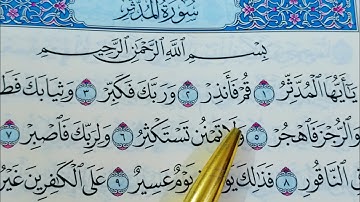 سُورَةُ الْمُدَّثِّرِ
بِسْمِ اللَّهِ الرَّحْمَٰنِ الرَّحِيمِ
يَا أَيُّهَا الْمُدَّثِّرُ ١ قُمْ فَأَنذِرْ ٢ وَرَبَّكَ فَكَبِّرْ ٣ وَثِيَابَكَ فَطَ
وَالرُّجْزَ فَاهْجُرْ ٥ وَلَا تَمْنُن تَسْتَكْثِرُ ٦ وَلِرَبِّكَ فَاصْبِرْ ٧
فِي النَّاقُورِ ٨ فَذَٰلِكَ يَوْمٌ عَسِيرٌ ٩ عَلَى الْكَافِرِينَ غَيْرُ